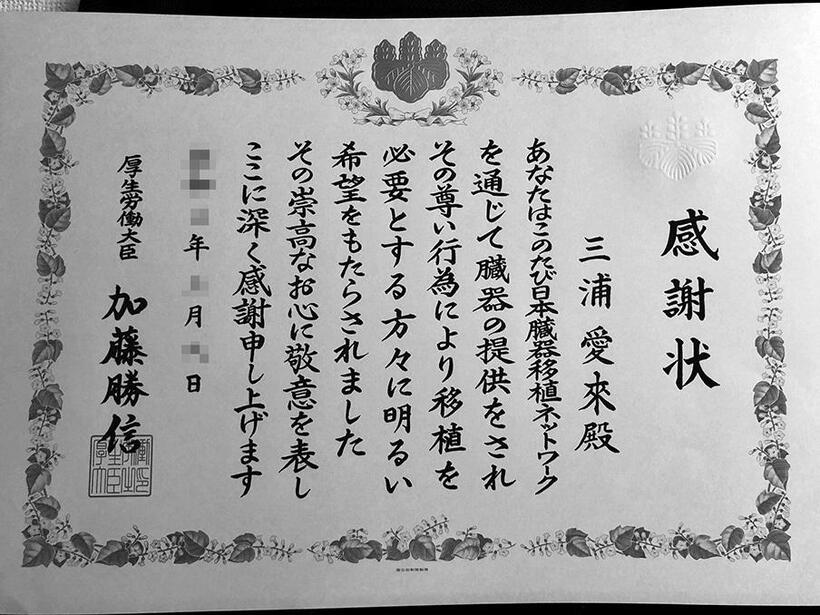 感謝状
三浦愛來殿
あなたはこのたび日本臓器移植ネットワーク
を通じて臓器の提供をされ
その尊い行為により移植を
必要とする方々に明るい
希望をもたらされました
その崇高なお心に敬意を表し
ここに深く感謝申し上げます
年 月 日
厚生労働大臣 加藤勝信